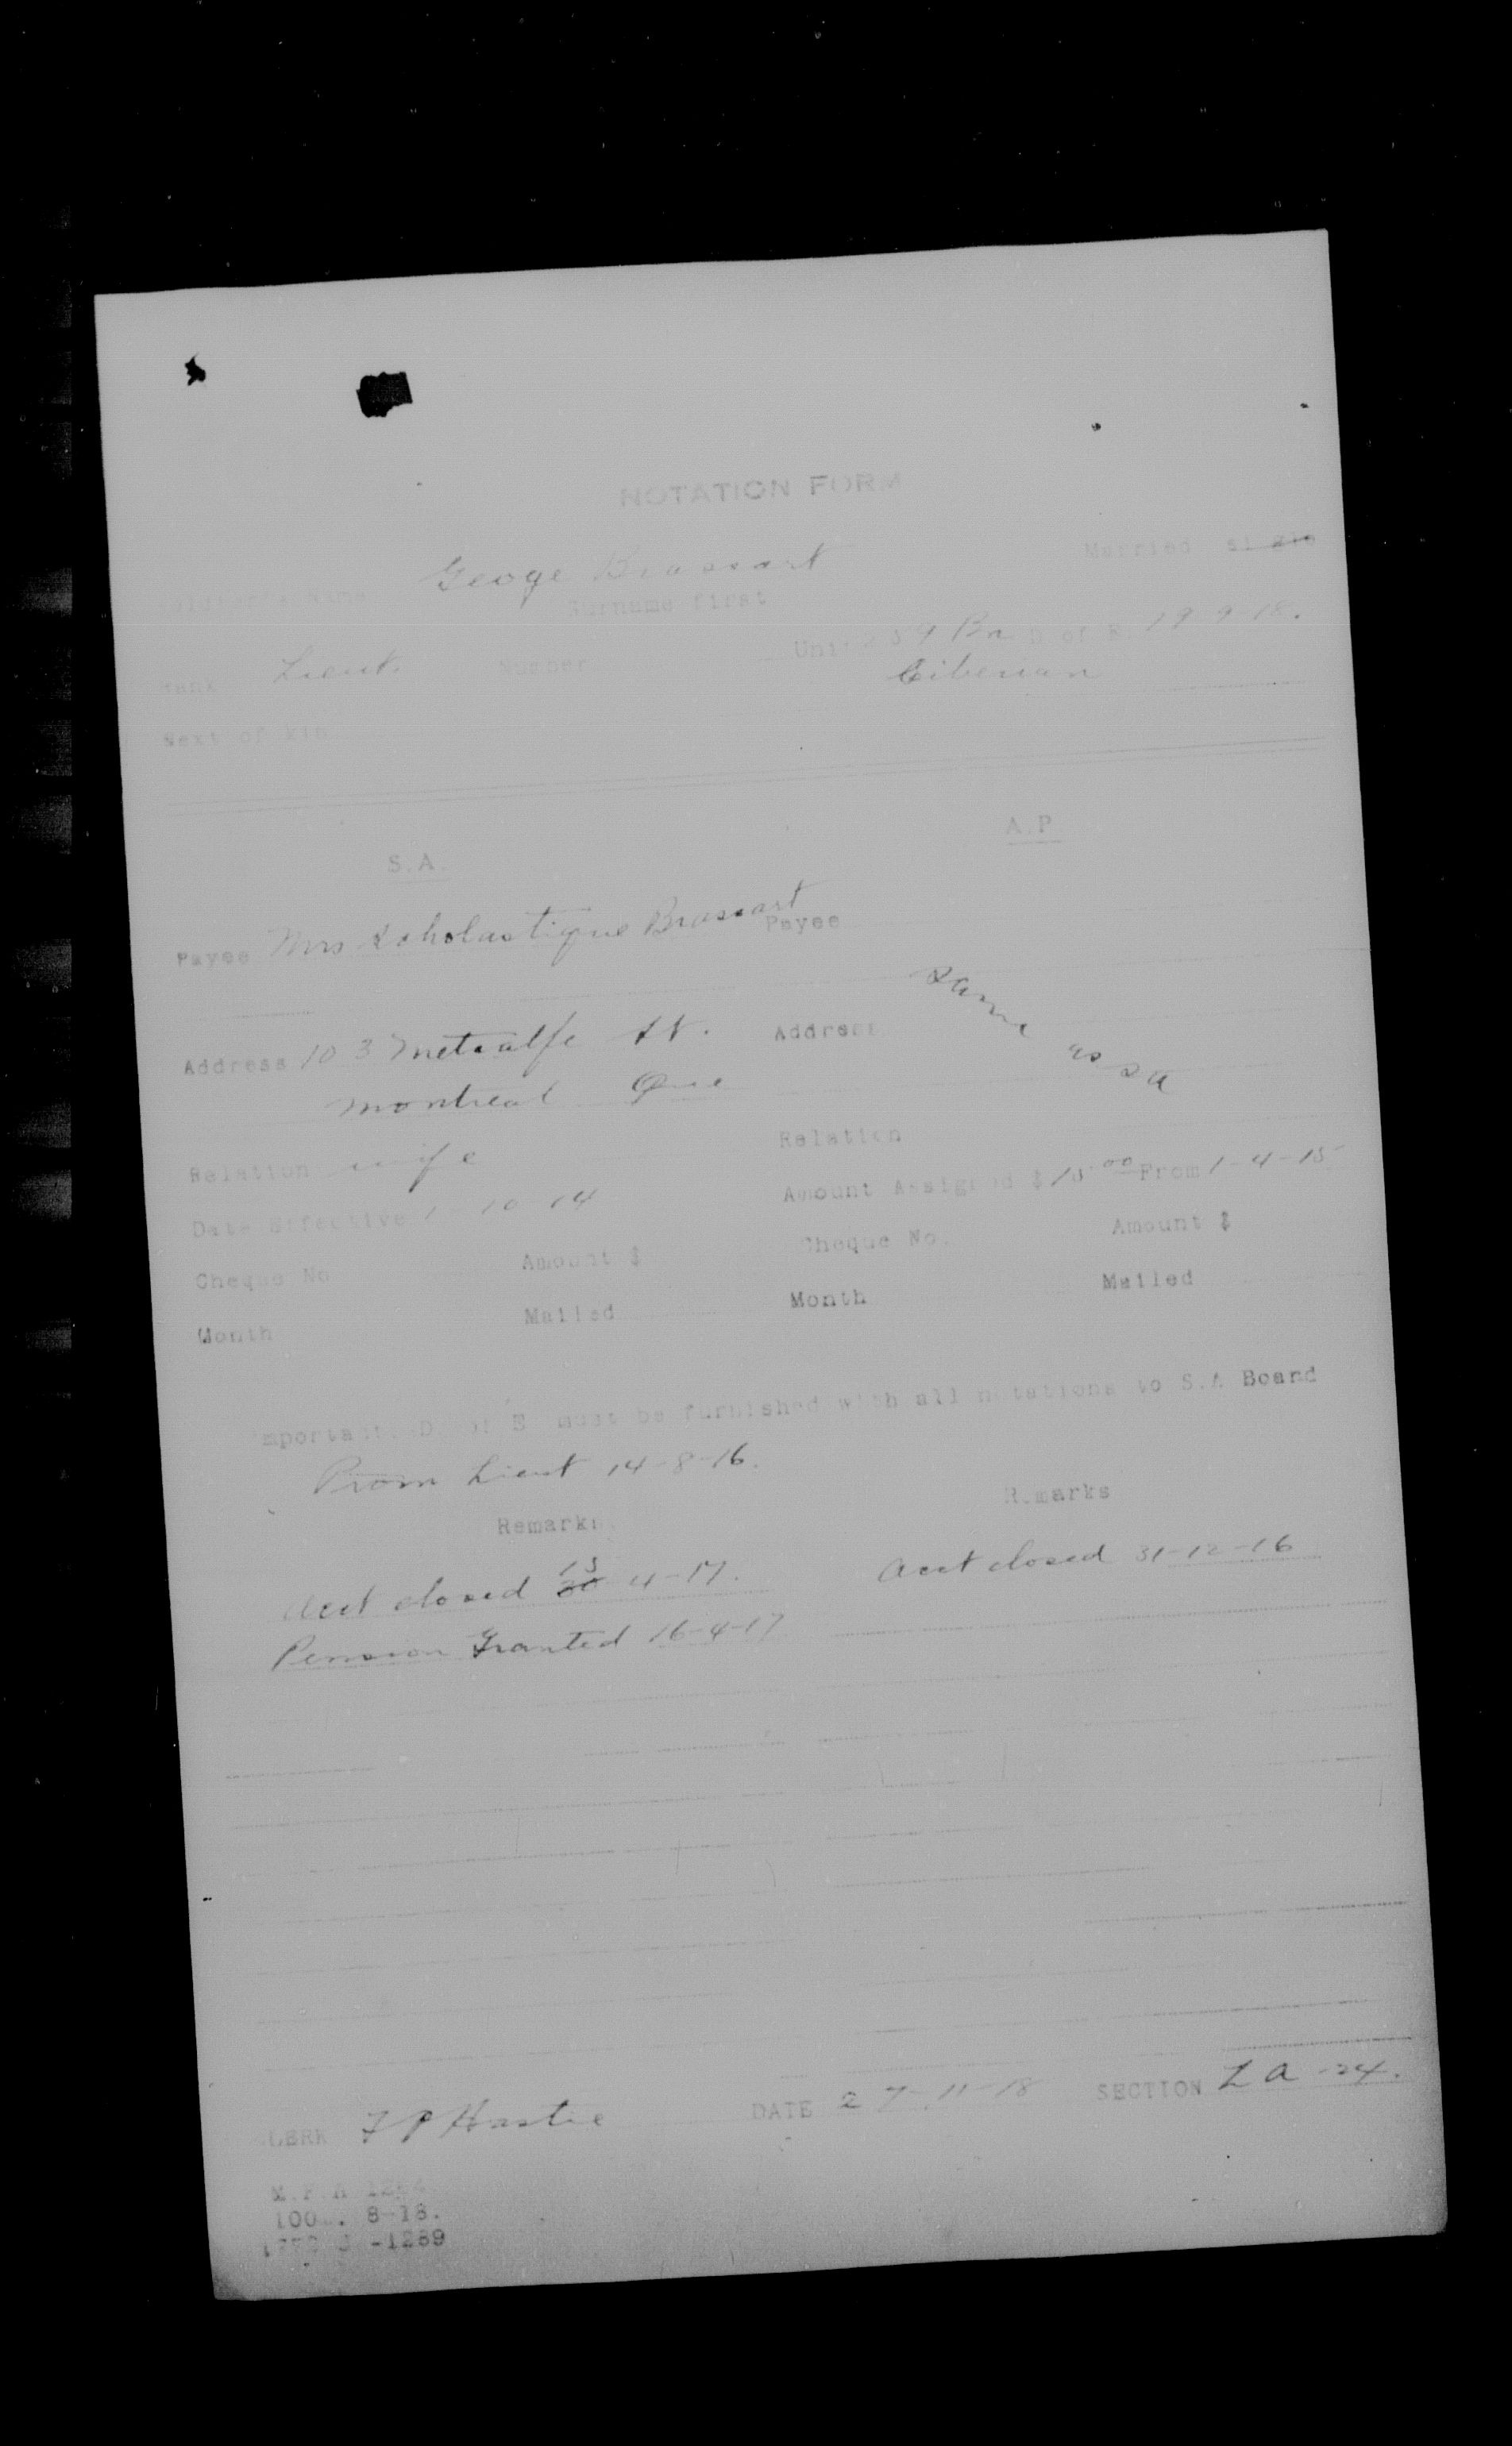 NOTATION FORM
Married
Geoge Brassart
Surname first
Unit 9 Bn D of E. 19-9-18.
Rank Lieut. Number
Ciberian
Next of kin
S.A.
A.P
Payee Mrs Scholastique Brassart
Payee
Same as S A
Address 103 Metcalfe St.
Address
Montreal Que
Relation wife
Relation
Date Effective 1-10-14
Amount Assigned $15.00 From 1-4-15
Cheque No Amount $
Cheque No. Amount $
Month Mailed
Month Mailed
Important D of E must be furnished with all notations to S.A Board
Prom Lieut 14-8-16.
Remarks
Remarks
Acct closed 30 15-4-17.
Acct closed 31-12-16
Pension Granted 16-4-17
CLERK F P Hastie DATE 27-11-18 SECTION L A -24.
100 . 8-18.
-1289